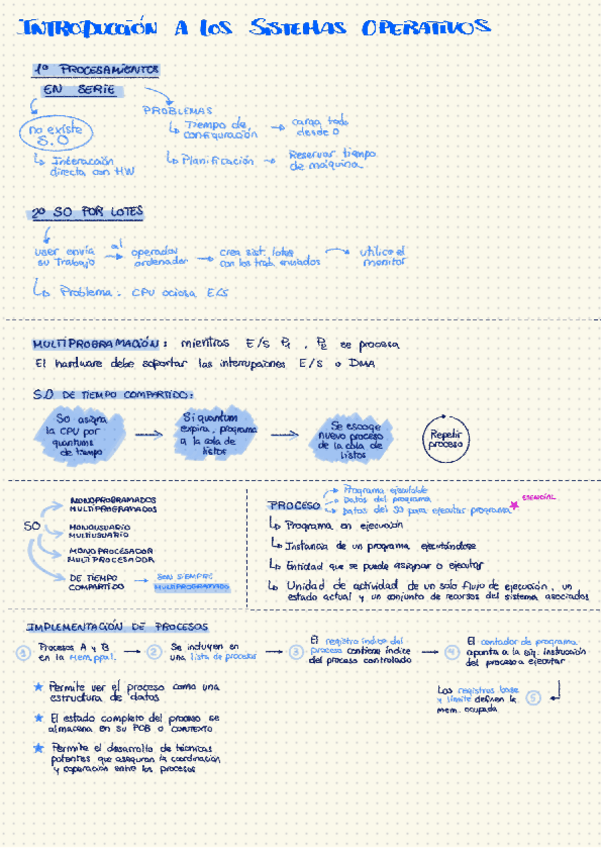 INTRODUCCIÓN A LOS SISTEMAS OPERATIVOS
1º PROCESAMIENTOS
EN SERIE
PROBLEMAS
no existe
S.O
Tiempo de → carga todo
configuración desde 0
↳ Interacción
directa con HW
↳ Planificación → Reservar tiempo
de máquina
2º SO POR LOTES
user envía al operador → crea sist. lotes → utiliza el
su trabajo → ordenador con los trab. enviados monitor
↳ Problema: CPU ociosa E/S
MULTIPROGRAMACIÓN: mientras E/S P1, P2 se procesa
El hardware debe soportar las interrupciones E/S o DMA
S.O DE TIEMPO COMPARTIDO:
SO asigna
la CPU por
quantums
de tiempo
Si quantum
expira, programa
a la cola de
listos
Se escoge
nuevo proceso
de la cola de
listos
Repetir
proceso
SO
MONOPROGRAMADOS
MULTIPROGRAMADOS
MONOUSUARIO
MULTIUSUARIO
MONOPROCESADOR
MULTIPROCESADOR
DE TIEMPO → SON SIEMPRE
COMPARTIDO MULTIPROGRAMADO
PROCESO
→ Programa ejecutable
→ Datos del programa
→ Datos del SO para ejecutar programa ★ ESENCIAL
↳ Programa en ejecución
↳ Instancia de un programa ejecutándose
↳ Entidad que se puede asignar o ejecutar
↳ Unidad de actividad de un solo flujo de ejecución, un
estado actual y un conjunto de recursos del sistema asociados
IMPLEMENTACIÓN DE PROCESOS
1 Procesos A y B
en la mem. ppal.
2 Se incluyen en
una lista de procesos
3 El registro índice del
proceso contiene índice
del proceso controlado
4 El contador de programa
apunta a la sig. instrucción
del proceso a ejecutar
Los registros base
y límite definen la 5
mem. ocupada
★ Permite ver el proceso como una
estructura de datos
★ El estado completo del proceso se
almacena en su PCB o CONTEXTO
★ Permite el desarrollo de técnicas
potentes que aseguran la coordinación
y cooperación entre los procesos